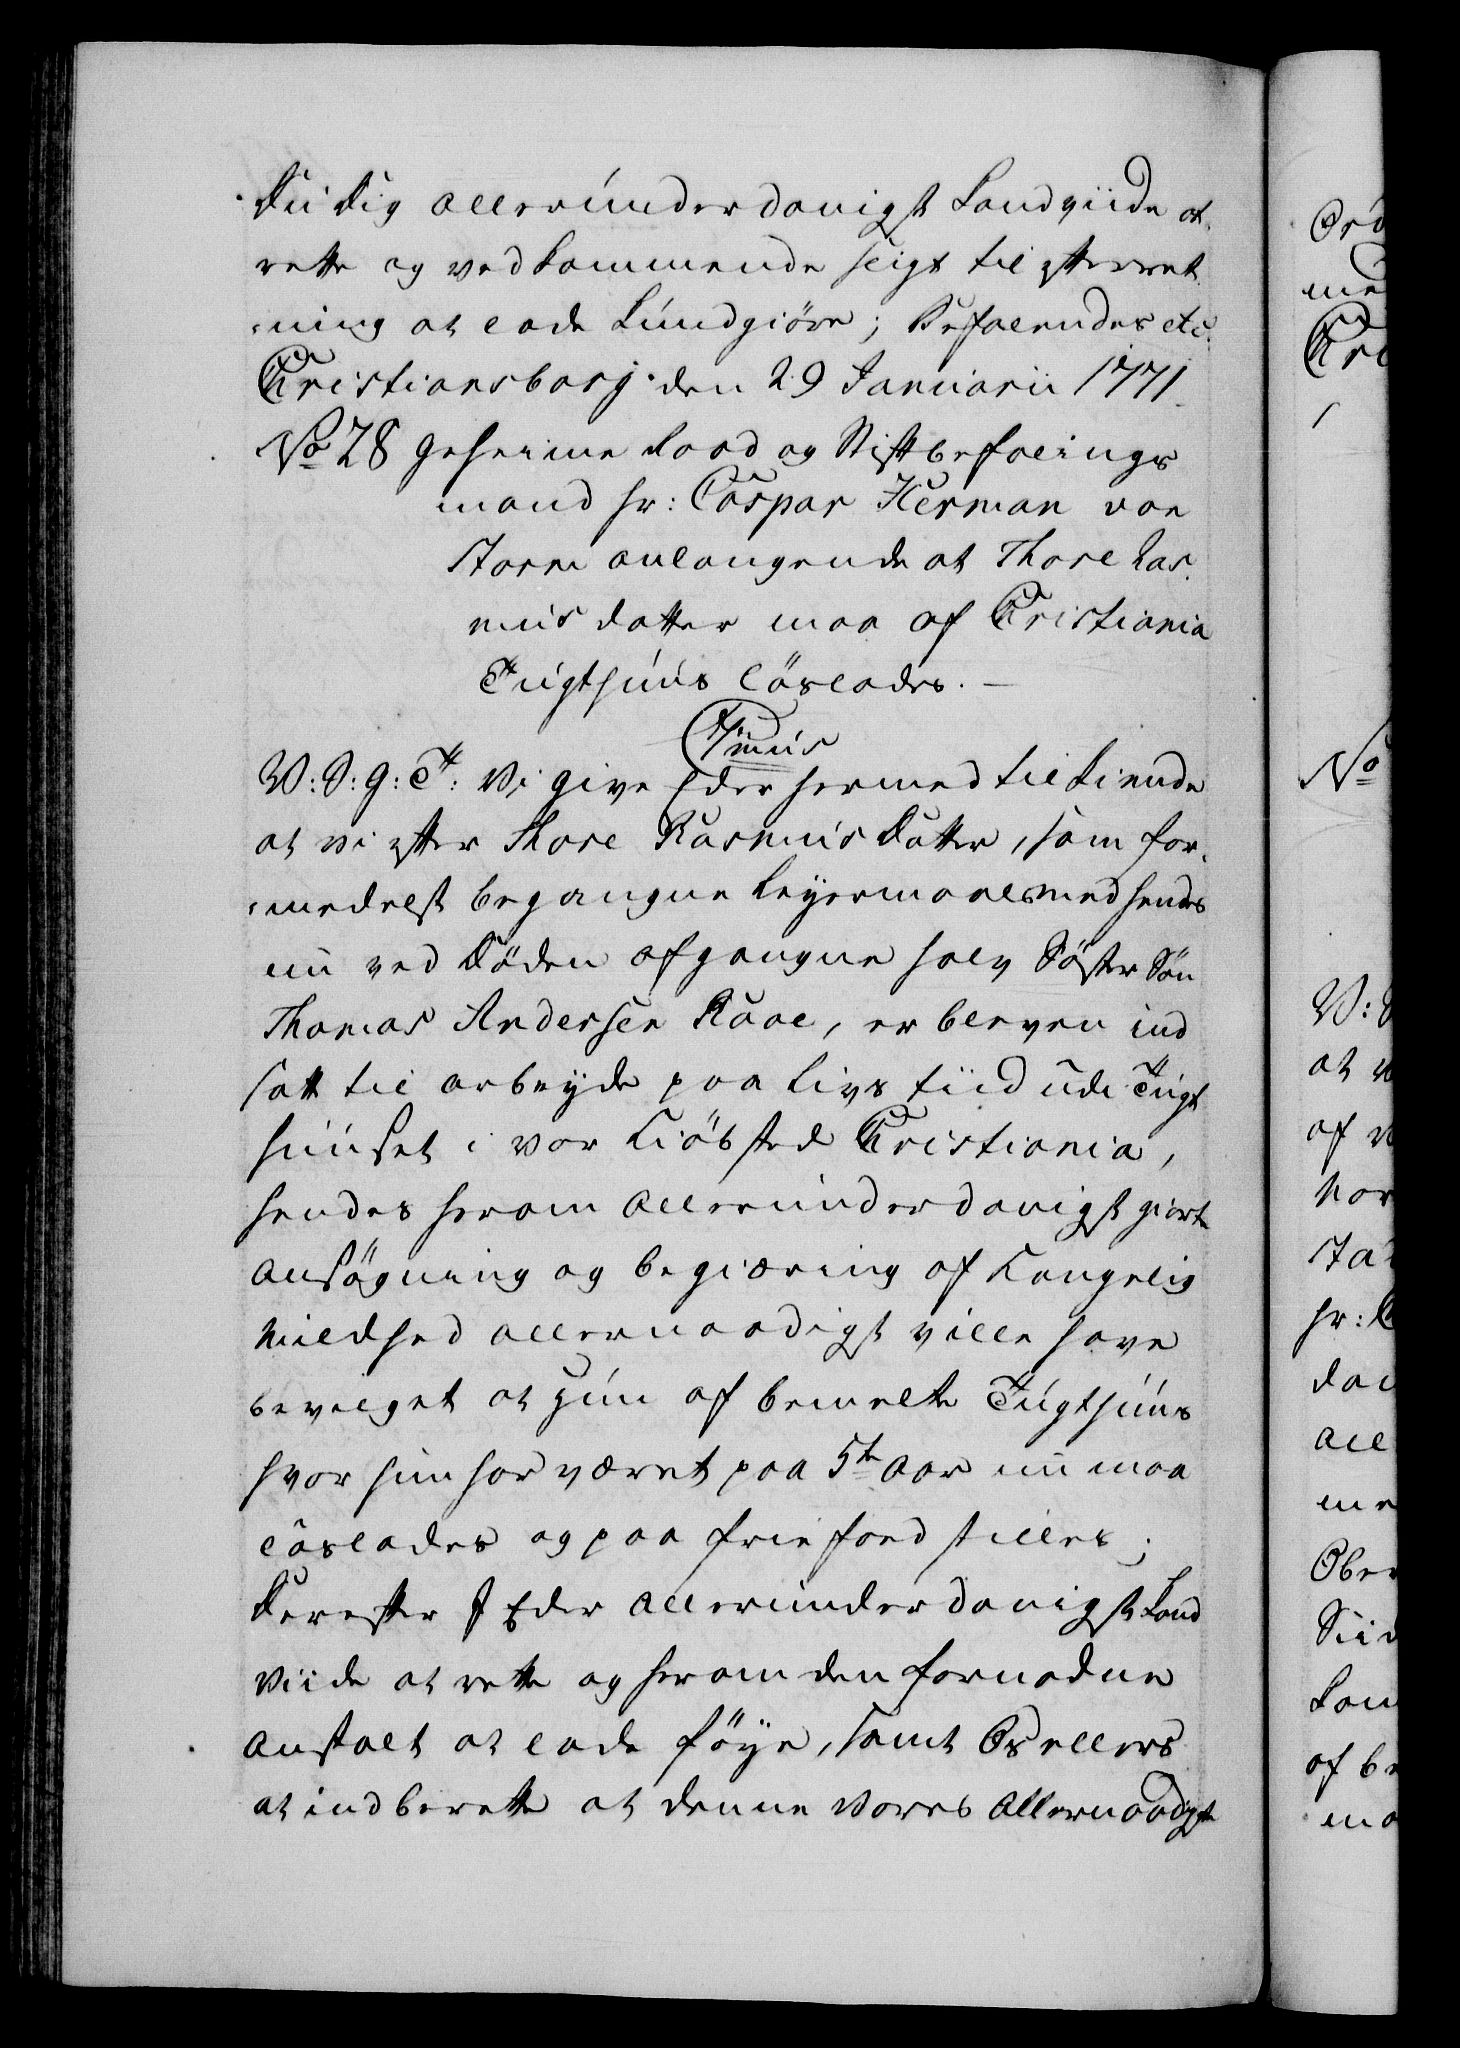 Du Dig allerunderdanigst haver viide at
rette og vedkommende sligt til efterret
ning at lade kundgiøre; Befalendes etc.
Christiansborg den 29 Januarii 1771
No 28 Geheime Raad og Stiftbefalings
mand Hr: Caspar Herman von
Storm anlangende at Thore Ras
mus datter maa af Christiania
Tugthuus løslades. —
V: S: G: T: Vi give Eder hermed tilkiende
at vi efter Thore Rasmus Datter, som for
medelst begangne Leyermaal med hendes
nu ved Døden afgangne halv Søster Søn
Thomas Andersen Raae, er bleven ind
satt til arbeyde paa Livs tiid udi Tugt
huuset i vor Kiøbsted Christiania,
hendes herom allerunderdanigst giorte
ansøgning og begiæring af Kongelig
Mildhed allernaadigst ville have
bevilget at hun af bemelte Tugthuus
hvor hun har været paa 5te Aar nu maa
løslades og paa frie foed stilles;
Derefter I Eder allerunderdanigst haver
viide at rette og herom den fornødne
Anstalt at lade føye, samt Os ellers
at indberette at denne vores allernaadigste